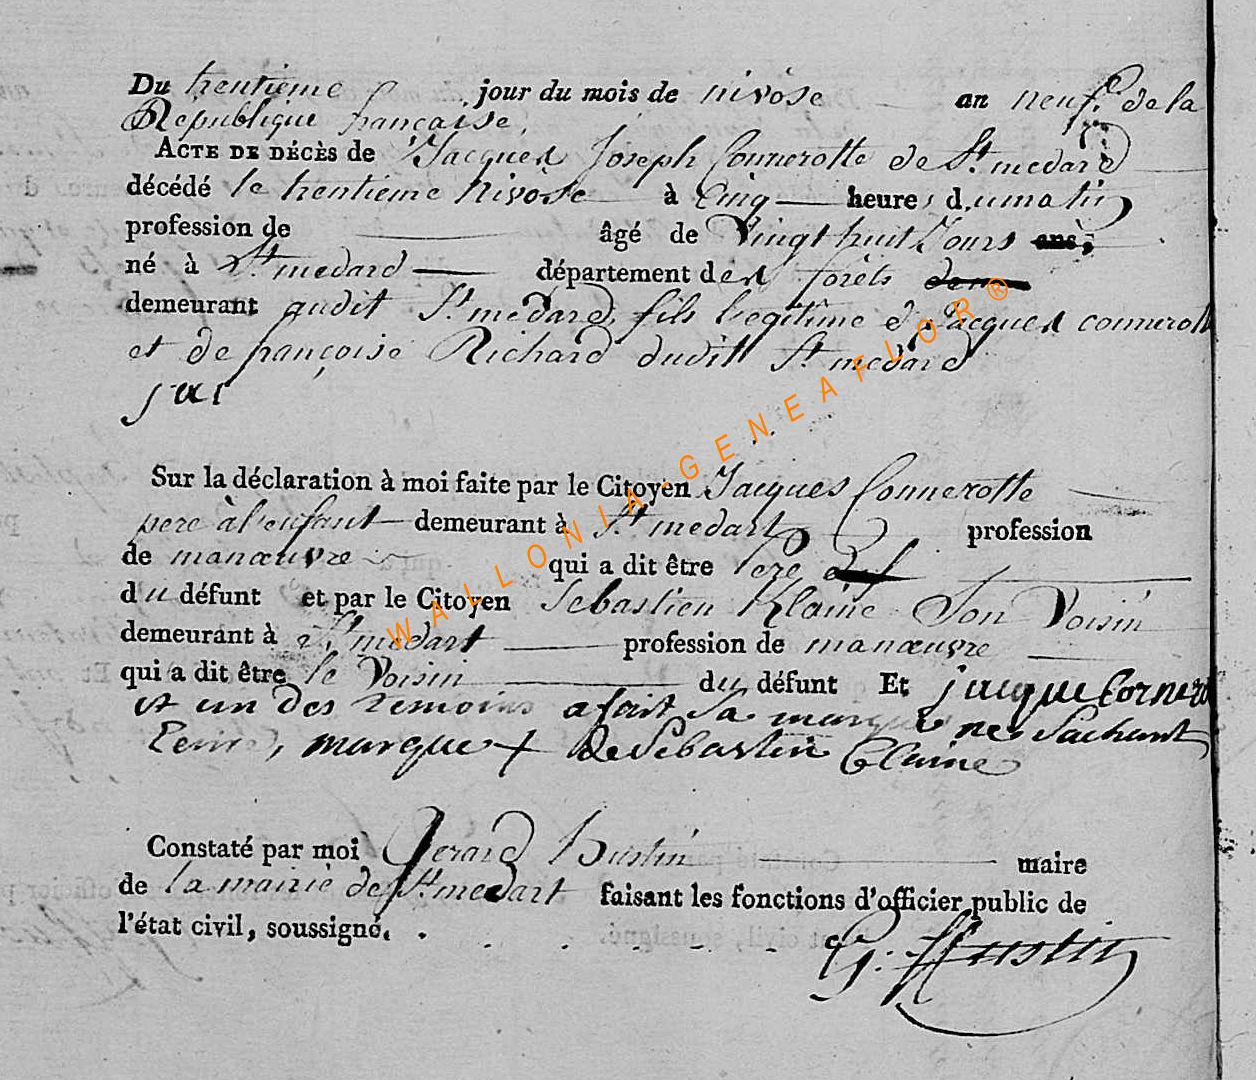 Du trentieme jour du mois de nivôse an neuf. de la
République françaises,
ACTE DE DÉCÈS de Jacques Joseph Connerotte de St. medard
décédé le trentieme nivôse à Cinq heures dumatin
profession de âgé de Vingt huit Jours ans,
né à St. medard département des forêts
demeurant audit St. medard, fils legitime de Jacques connerott
et de françoise Richard dudit St. medard
Sur la déclaration à moi faite par le Citoyen Jacques Connerotte
pere àl'enfant demeurant à St. medart profession
de manœuvre qui a dit être Pere
du défunt et par le Citoyen Sebastien Klaine Son Voisin
demeurant à St. medart profession de manœuvre
qui a dit être le Voisin du défunt Et jacque Cornero
et un des temoins a fait Sa marque ne Sachant
marque + de Sebastin Claine
Constaté par moi Gerard Hustin maire
de la mairie de St. medart faisant les fonctions d'officier public de
l'état civil, soussigné.
G: Hustin
WALLONIA-GENEAFLOR®